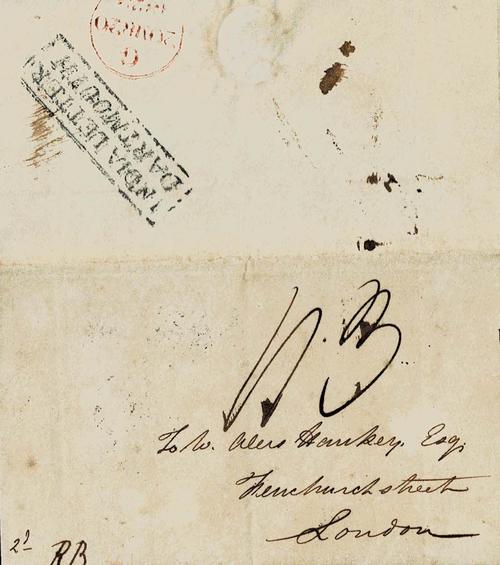 INDIA LETTER
DARTMOUTH
To W. Alers Hankey. Esq.
Fenchurch street
London
RB